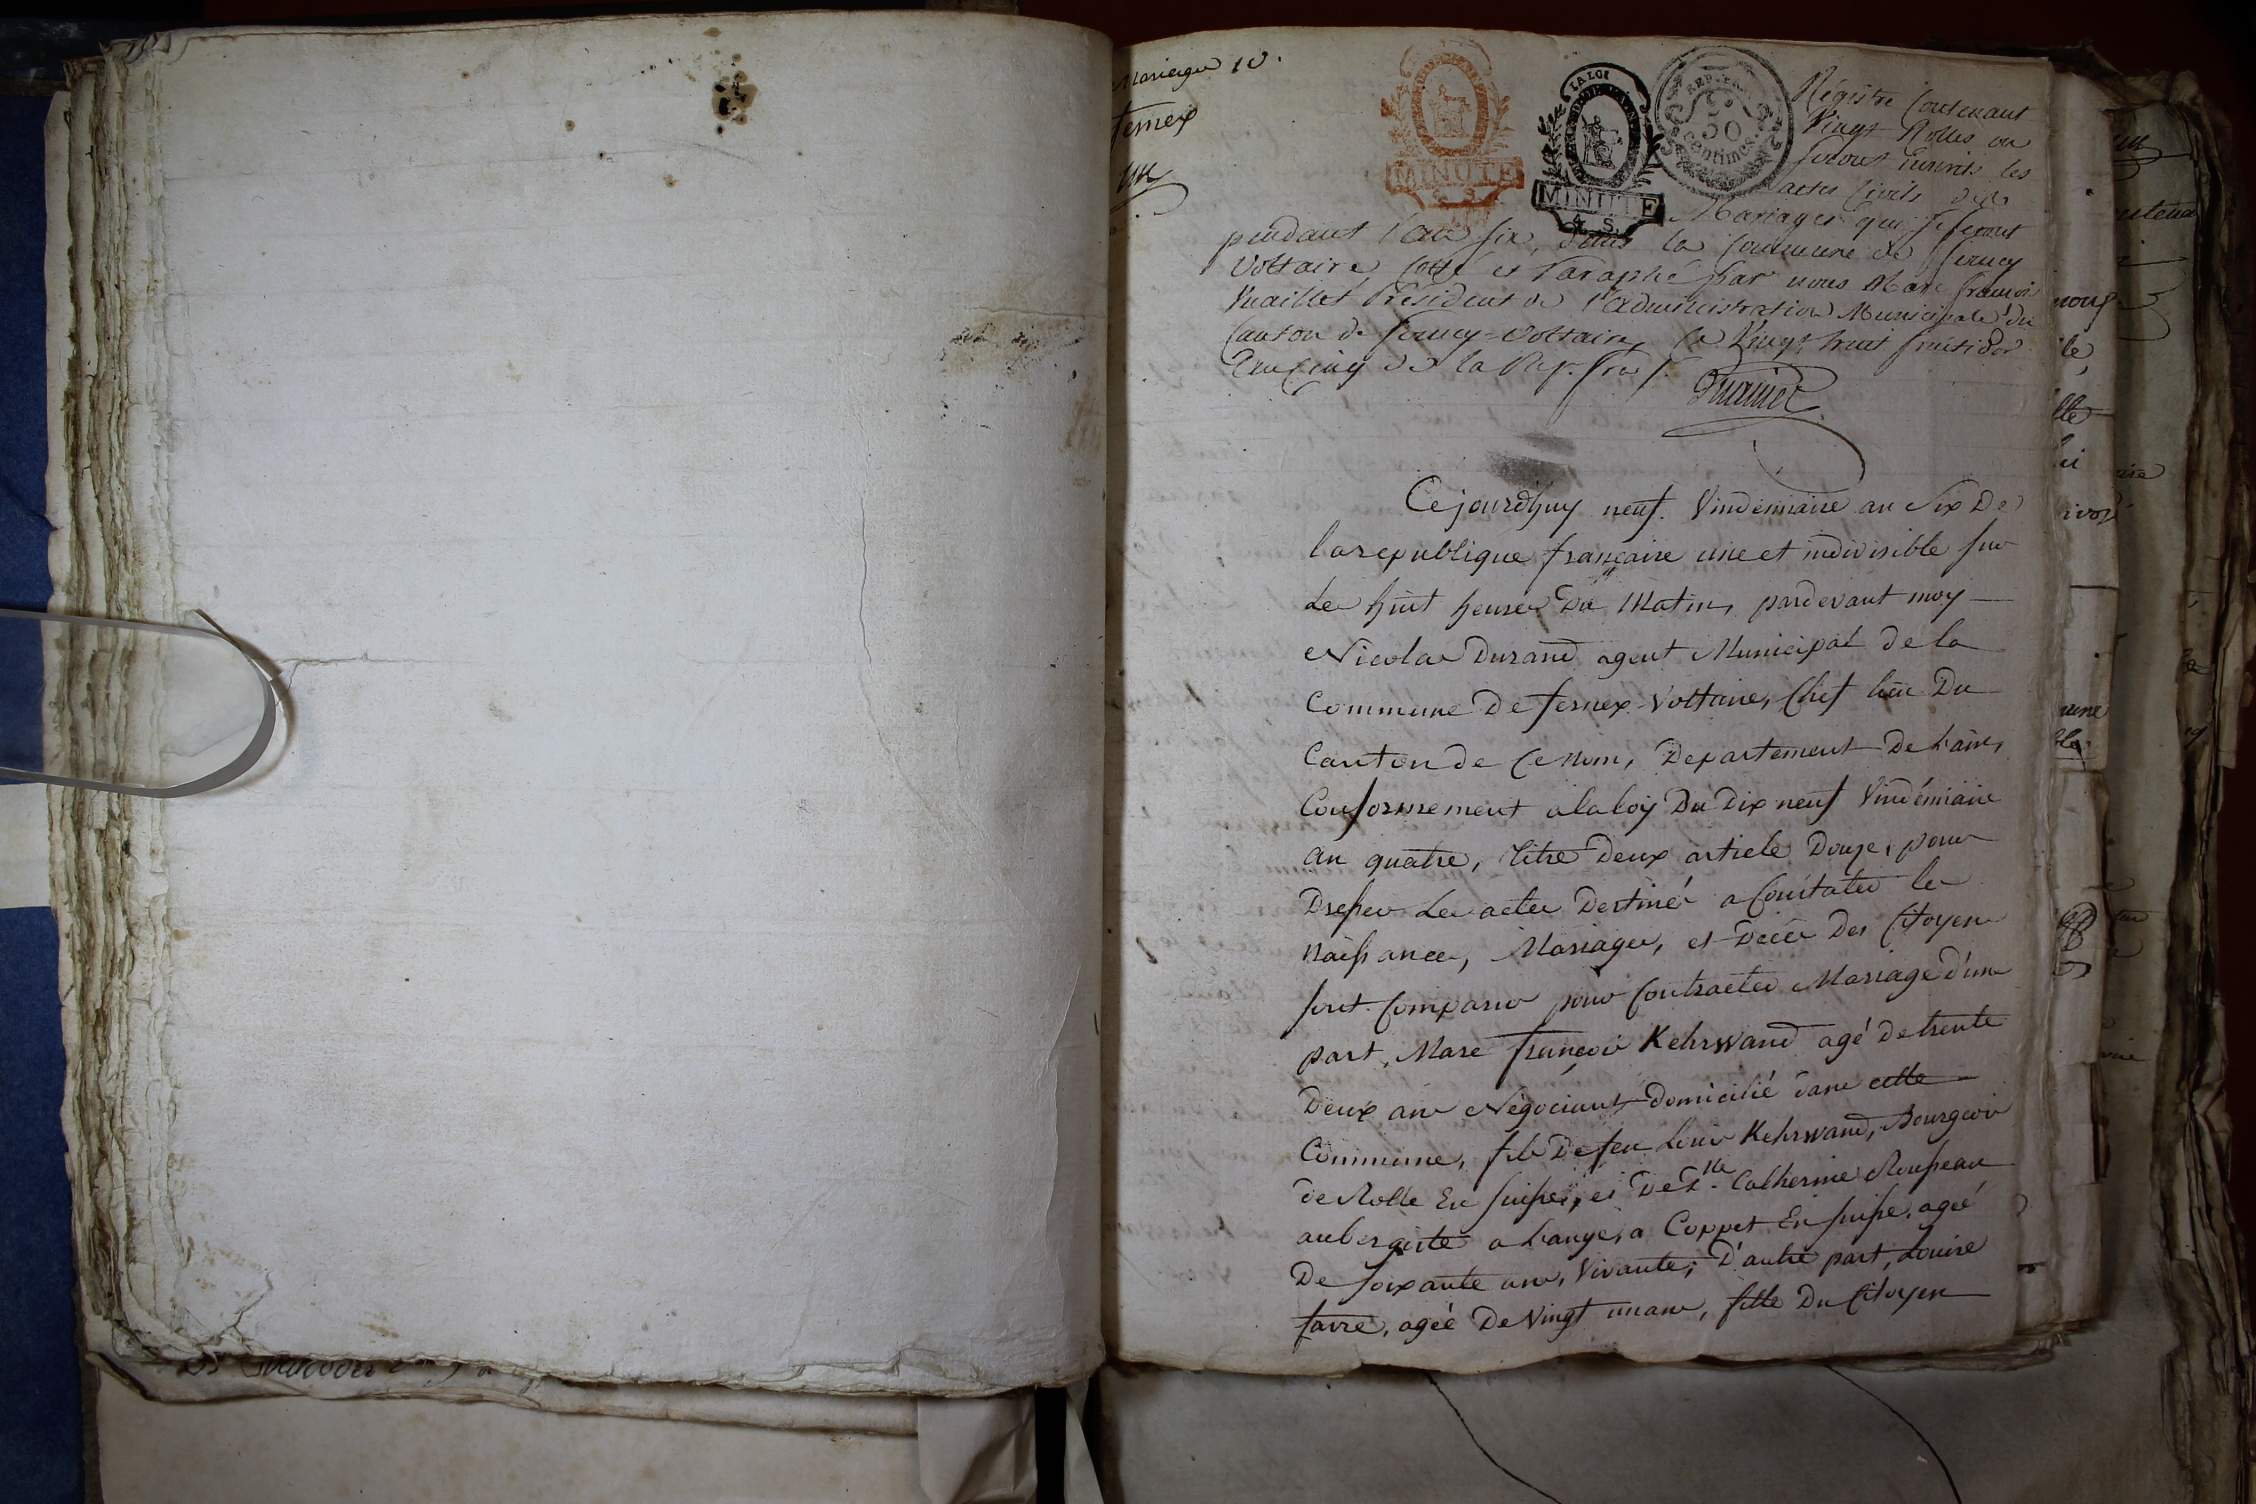 Mariages
fernex
un
LA LOI
MINUTE
4. S.
LA LOI
MINUTE
4. S.
REP. FRA.
50
Centimes
Régistre Contenant
Vingt Rolles ou
seront Inscrits les
actes Civils des
Mariages qui se feront
pendant l'an six, dans la Commune de ferney
Voltaire, Cotté et Paraphé par nous Marc françois
Vuaillet Président de l'administration Municipale du
Canton de ferney-Voltaire, Ce Vingt huit fructidor
an Cinq de la Rep. fra.se
Vuaillet
Cejourdhuy neuf Vindemiaire an Six De
la republique française une et indivisible sur
Les huit heures Du Matin, pardevant moy
Nicolas Durand agent Municipal de la
Commune De fernex-Voltaire, Chef lieu Du
Canton de Ce nom, Departement De L'ain,
Conformement a la loy Du Dix neuf Vindémiaire
an quatre, titre Deux article Douze, pour
Dresser Les actes Destinés a Constater les
naissances, Mariages, et Décès Des Citoyens
sont Comparus pour Contracter Mariage d'une
part, Marc françois Kehrwand agé De trente
Deux ans Négociant domicilié dans cette
Commune, fils De feu Louis Kehrwand, Bourgeois
de Rolle En suisse, et De D.lle Catherine Rousseau
aubergiste a L'ange, a Coppet En suisse, agée
De soixante ans, Vivante; D'autre part, Louise
favre, agée De Vingt un ans, fille Du Citoyen